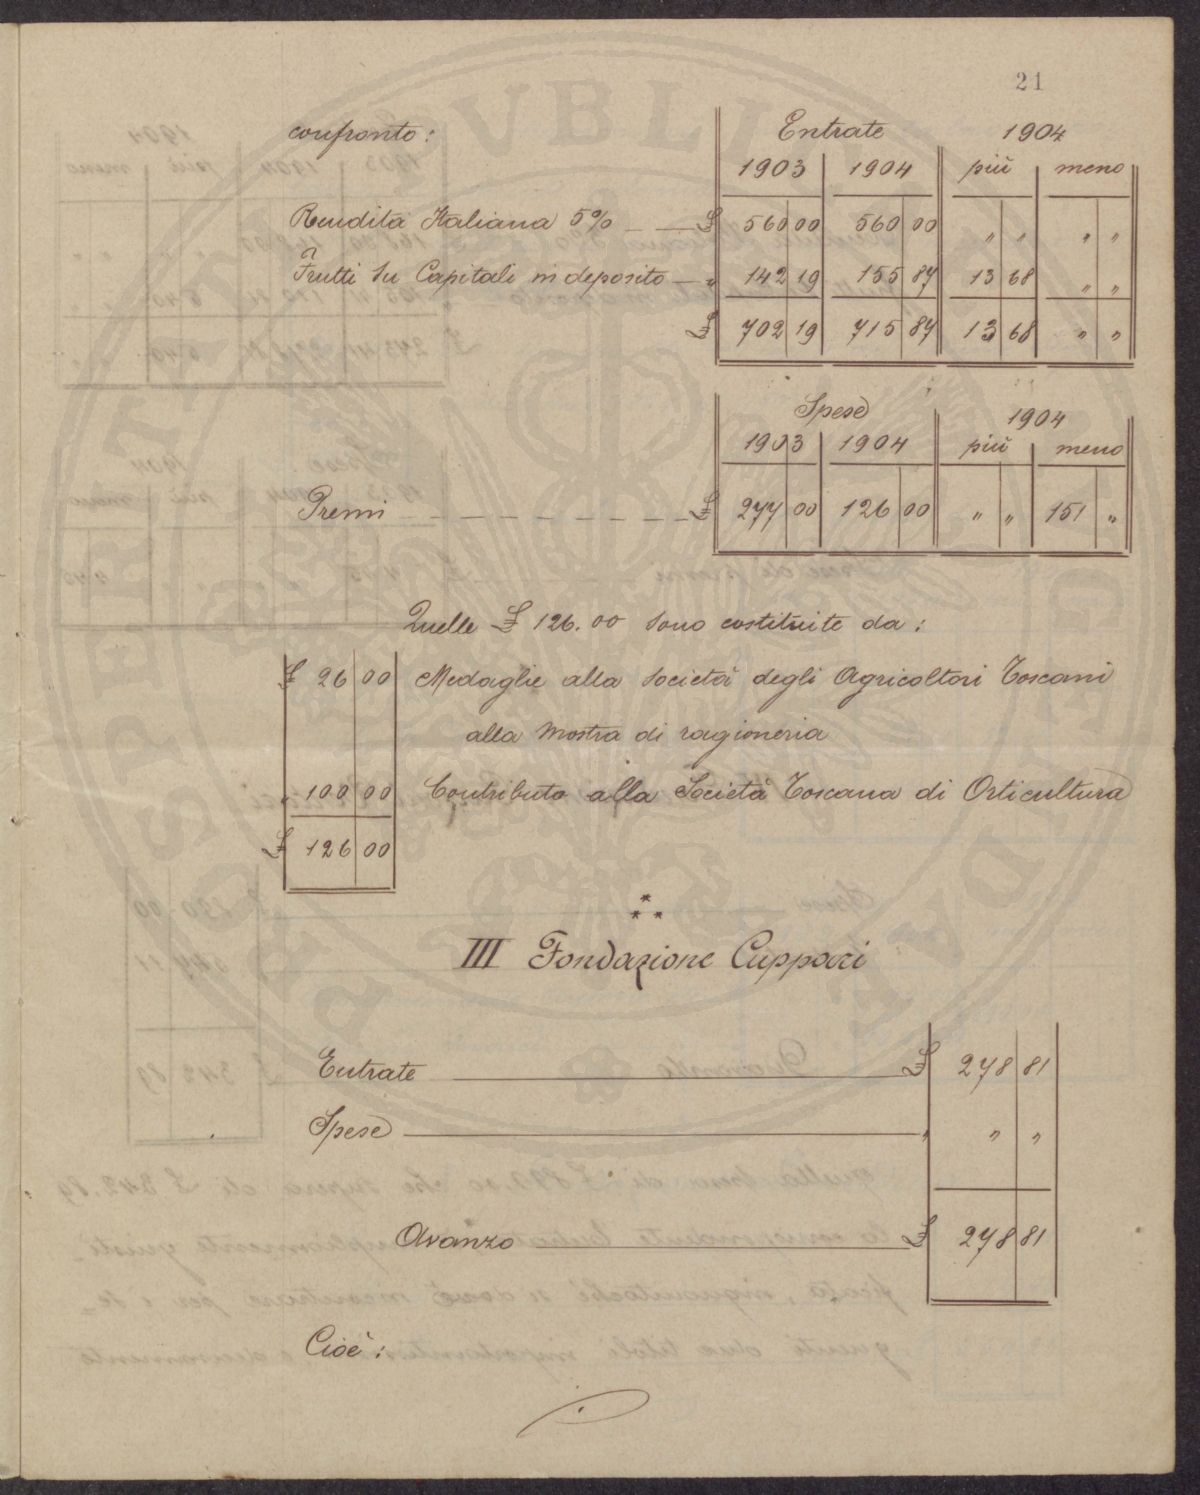 21
confronto: Entrate 1904
1903 1904 più meno
Rendita Italiana 5% £ 560 00 560 00 " " " "
Frutti su Capitali in deposito — " 142 19 155 87 13 68 " "
£ 702 19 715 87 13 68 " "
Spese 1904
1903 1904 più meno
Premi £ 277 00 126 00 " " 151 "
Quelle £ 126.00 sono costituite da:
£ 26 00 Medaglie alla Società degli Agricoltori Toscani
alla Mostra di ragioneria
" 100 00 Contributo alla Società Toscana di Orticultura
£ 126 00
III Fondazione Cuppari
Entrate £ 278 81
Spese " " "
Avanzo £ 278 81
Cioè: